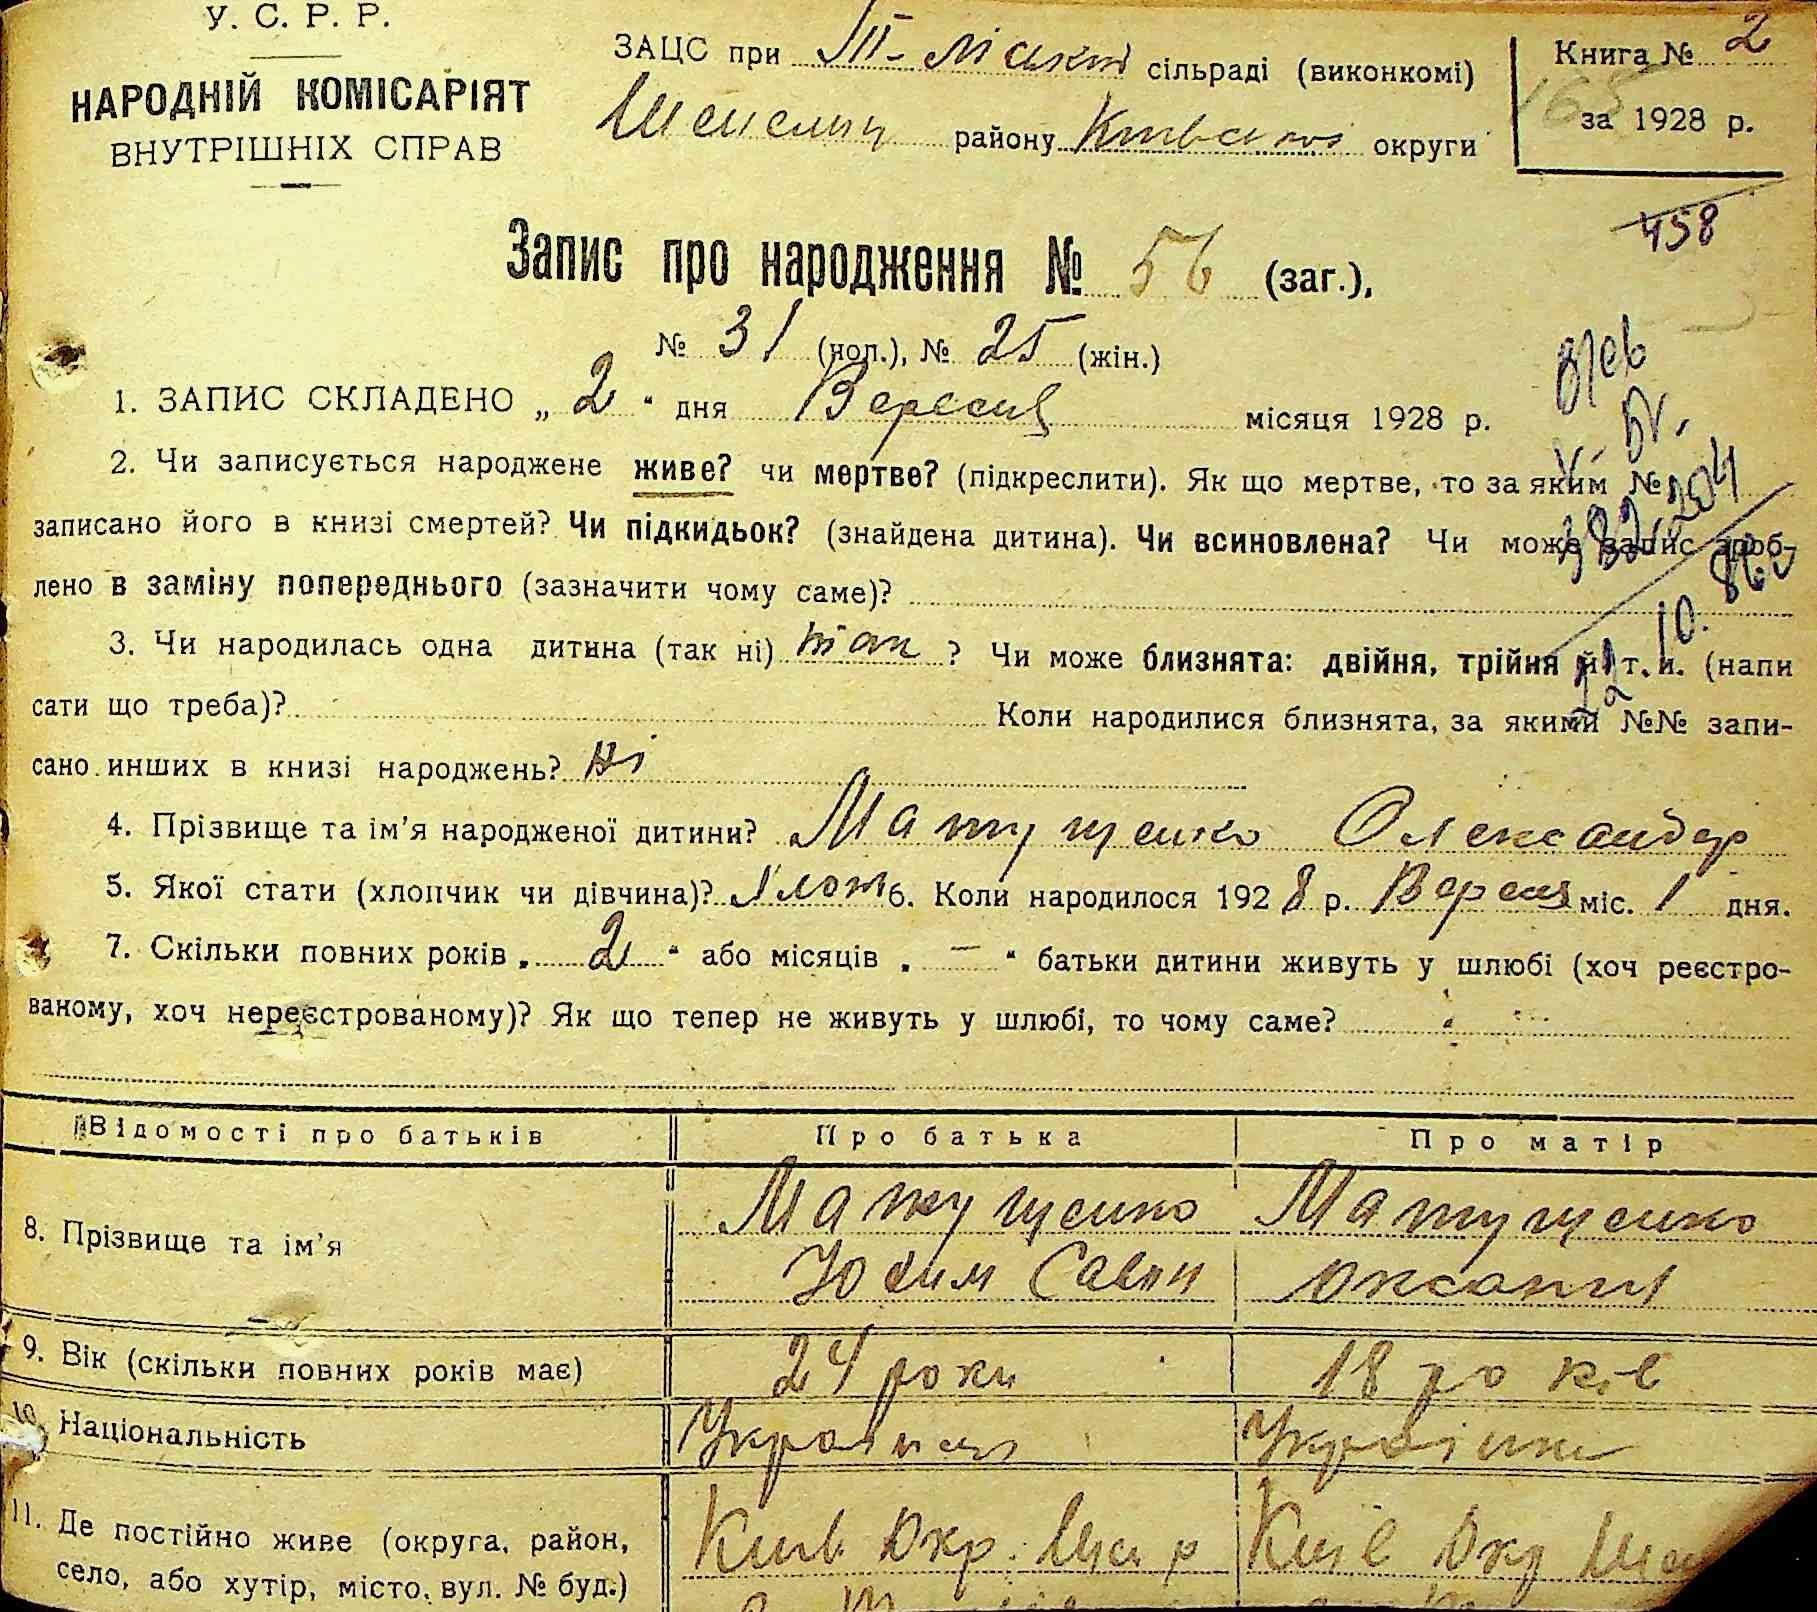 У. С. Р. Р.
НАРОДНІЙ КОМІСАРІЯТ
ВНУТРІШНІХ СПРАВ
ЗАЦС при сільраді (виконкомі)
району Київської округи
Книга № 2
168
за 1928 р.
458
Запис про народження № 56 (заг.),
№ 31 (чол.), № 25 (жін.)
1. ЗАПИС СКЛАДЕНО „ 2 “ дня Вересня місяця 1928 р.
2. Чи записується народжене живе? чи мертве? (підкреслити). Як що мертве, то за яким №
записано його в книзі смертей? Чи підкидьок? (знайдена дитина). Чи всиновлена? Чи може запис зроб-
лено в заміну попереднього (зазначити чому саме)?
3. Чи народилась одна дитина (так ні) так ? Чи може близнята: двійня, трійня й т. и. (напи
сати що треба)? Коли народилися близнята, за якими №№ запи-
сано инших в книзі народжень? Ні
4. Прізвище та ім'я народженої дитини? Матущенко Олександр
5. Якої стати (хлопчик чи дівчина)? Хлоп 6. Коли народилося 1928 р. Вересня міс. 1 дня.
7. Скільки повних років „ 2 “ або місяців „ — “ батьки дитини живуть у шлюбі (хоч реєстро-
ваному, хоч нереєстрованому)? Як що тепер не живуть у шлюбі, то чому саме?
Відомості про батьків Про батька Про матір
8. Прізвище та ім'я Матущенко Матущенко
Юхим Савич Оксания
9. Вік (скільки повних років має) 24 роки 18 років
10. Національність Українець Українка
11. Де постійно живе (округа, район, Київ. Окр. Київ Окр
село, або хутір, місто, вул. № буд.)